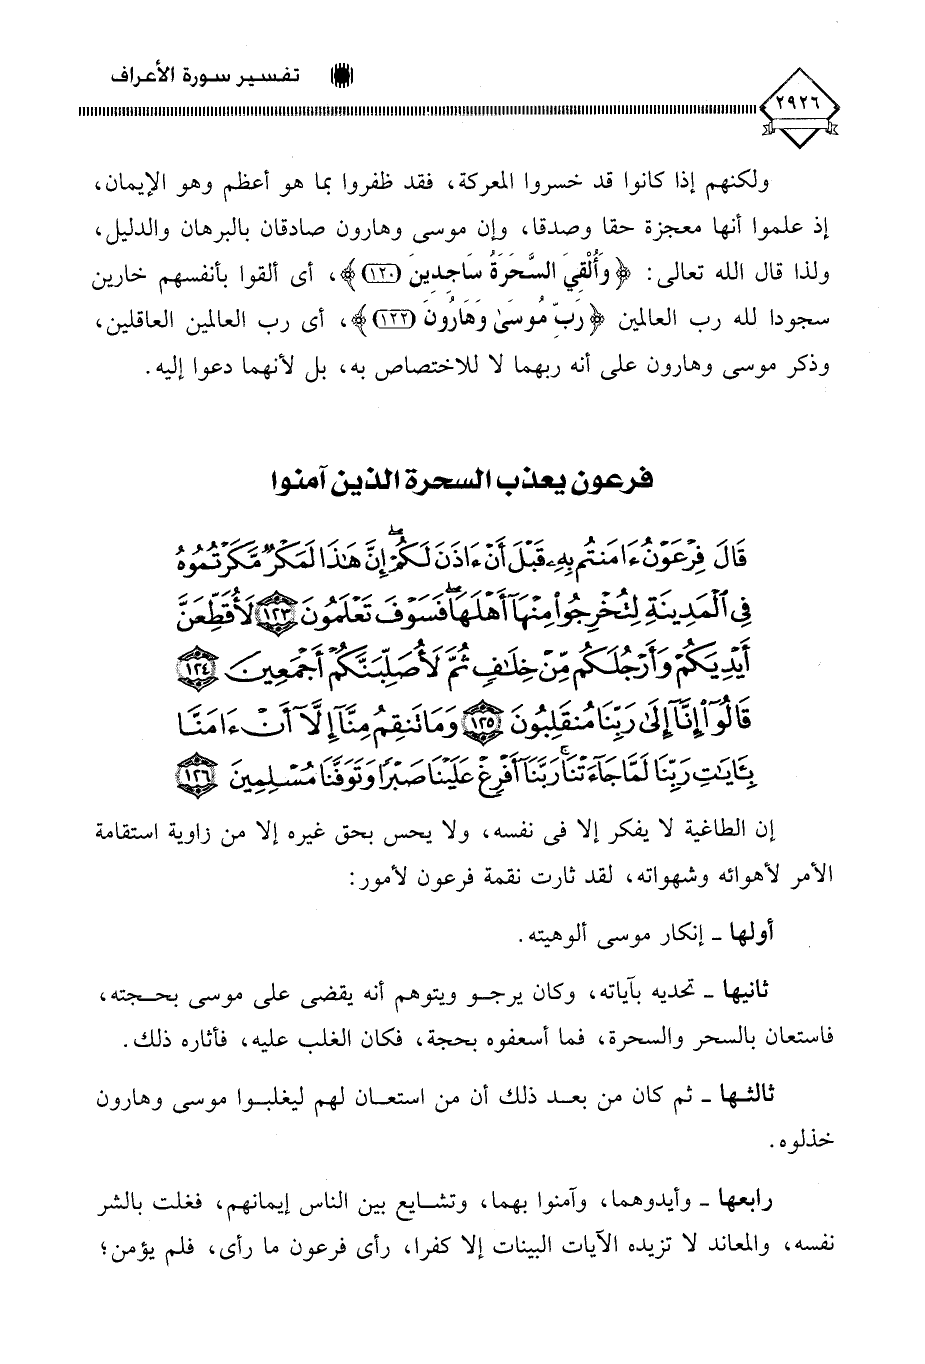 تفسير سورة الأعراف
٢٩٢٦
ولكنهم إذا كانوا قد خسروا المعركة، فقد ظفروا بما هو أعظم وهو الإيمان،
إذ علموا أنها معجزة حقا وصدقا، وإن موسى وهارون صادقان بالبرهان والدليل،
ولذا قال الله تعالى: ﴿وَأُلْقِيَ السَّحَرَةُ سَاجِدِينَ (١٢٠)﴾، أى ألقوا بأنفسهم خارين
سجودا لله رب العالمين ﴿رَبِّ مُوسَىٰ وَهَارُونَ (١٢٢)﴾، أى رب العالمين العاقلين،
وذكر موسى وهارون على أنه ربهما لا للاختصاص به، بل لأنهما دعوا إليه.
فرعون يعذب السحرة الذين آمنوا
قَالَ فِرْعَوْنُ ءَامَنتُم بِهِۦ قَبْلَ أَنْ ءَاذَنَ لَكُمْ ۖ إِنَّ هَٰذَا لَمَكْرٌ مَّكَرْتُمُوهُ
فِي ٱلْمَدِينَةِ لِتُخْرِجُوا۟ مِنْهَآ أَهْلَهَا ۖ فَسَوْفَ تَعْلَمُونَ ١٢٣ لَأُقَطِّعَنَّ
أَيْدِيَكُمْ وَأَرْجُلَكُم مِّنْ خِلَٰفٍ ثُمَّ لَأُصَلِّبَنَّكُمْ أَجْمَعِينَ ١٢٤
قَالُوٓا۟ إِنَّآ إِلَىٰ رَبِّنَا مُنقَلِبُونَ ١٢٥ وَمَا تَنقِمُ مِنَّآ إِلَّآ أَنْ ءَامَنَّا
بِـَٔايَٰتِ رَبِّنَا لَمَّا جَآءَتْنَا ۚ رَبَّنَآ أَفْرِغْ عَلَيْنَا صَبْرًا وَتَوَفَّنَا مُسْلِمِينَ ١٢٦
إن الطاغية لا يفكر إلا فى نفسه، ولا يحس بحق غيره إلا من زاوية استقامة
الأمر لأهوائه وشهواته، لقد ثارت نقمة فرعون لأمور:
أولها ـ إنكار موسى ألوهيته.
ثانيها ـ تحديه بآياته، وكان يرجو ويتوهم أنه يقضى على موسى بحجته،
فاستعان بالسحر والسحرة، فما أسعفوه بحجة، فكان الغلب عليه، فأثاره ذلك.
ثالثها ـ ثم كان من بعد ذلك أن من استعان لهم ليغلبوا موسى وهارون
خذلوه.
رابعها ـ وأيدوهما، وآمنوا بهما، وتشايع بين الناس إيمانهم، فغلت بالشر
نفسه، والمعاند لا تزيده الآيات البينات إلا كفرا، رأى فرعون ما رأى، فلم يؤمن؛